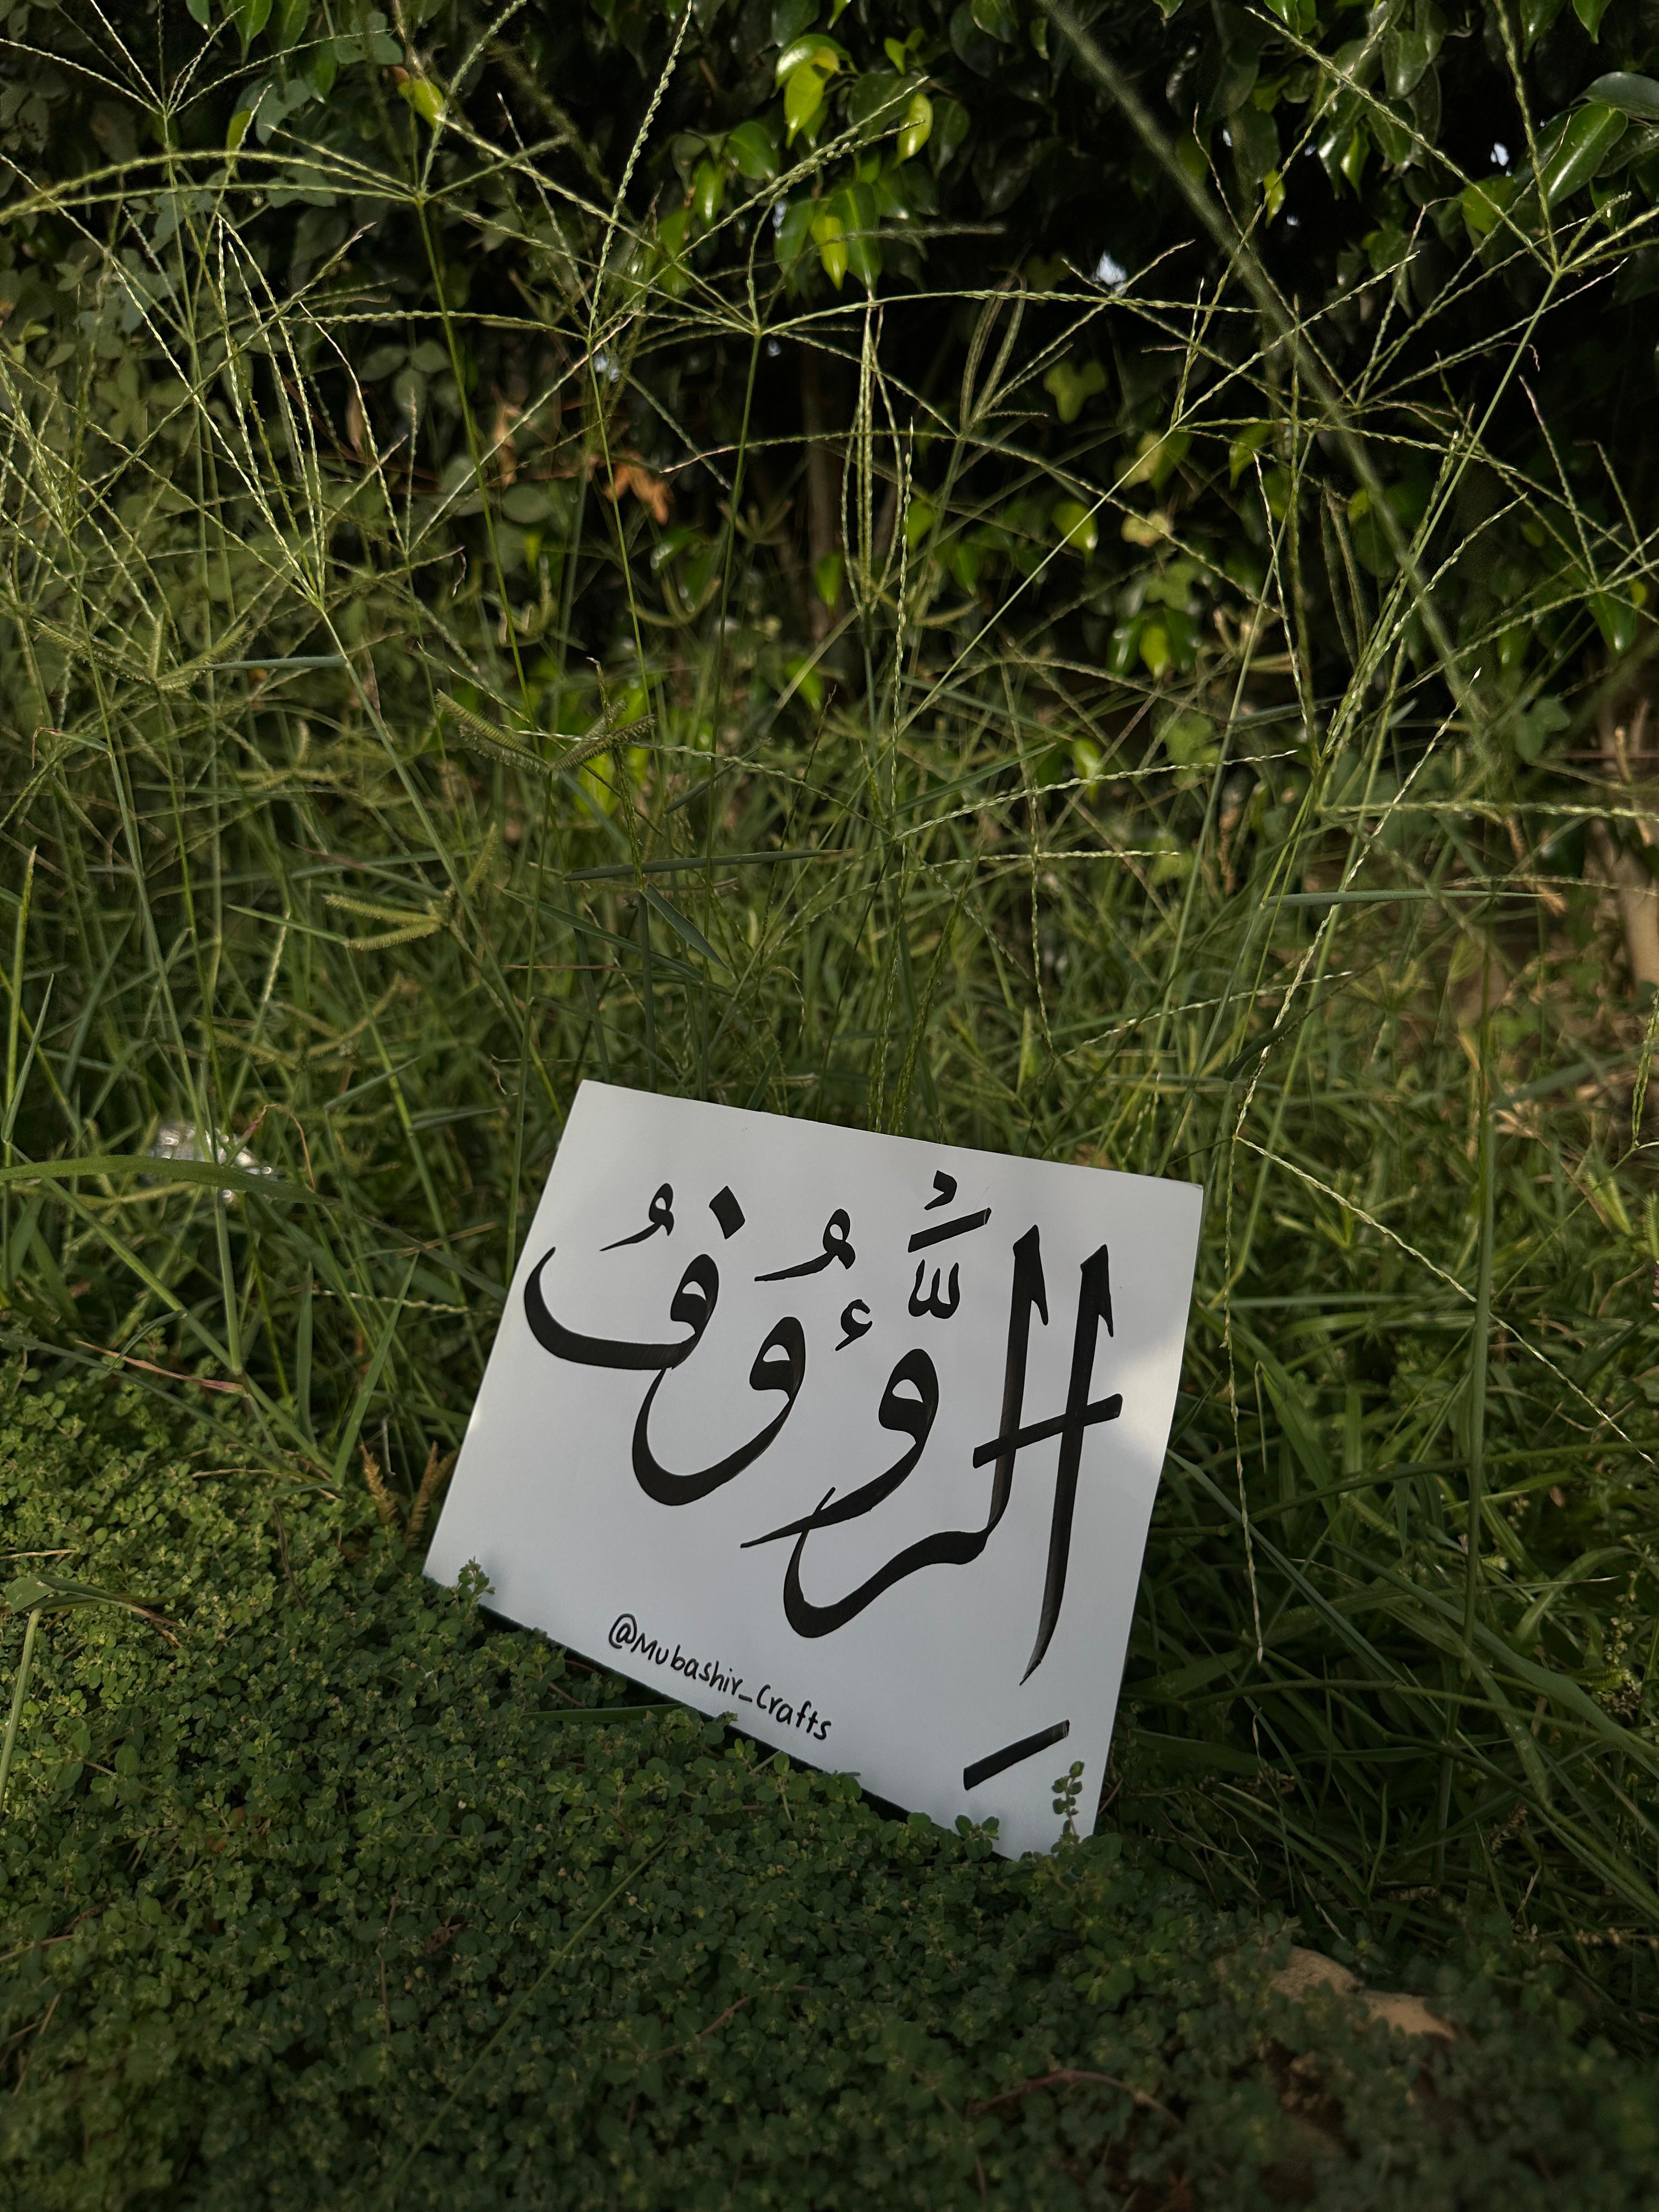 الرَّؤُوفُ
@Mubashir_Crafts